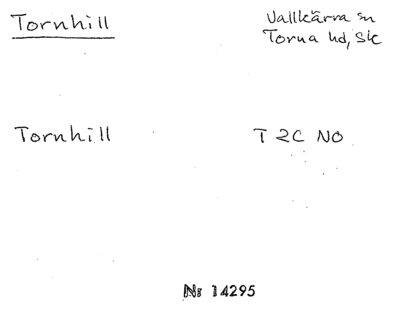 Tornhill
Vallkärra sn
Torna hd, Sk
Tornhill
T 2C NO
Nr 14295